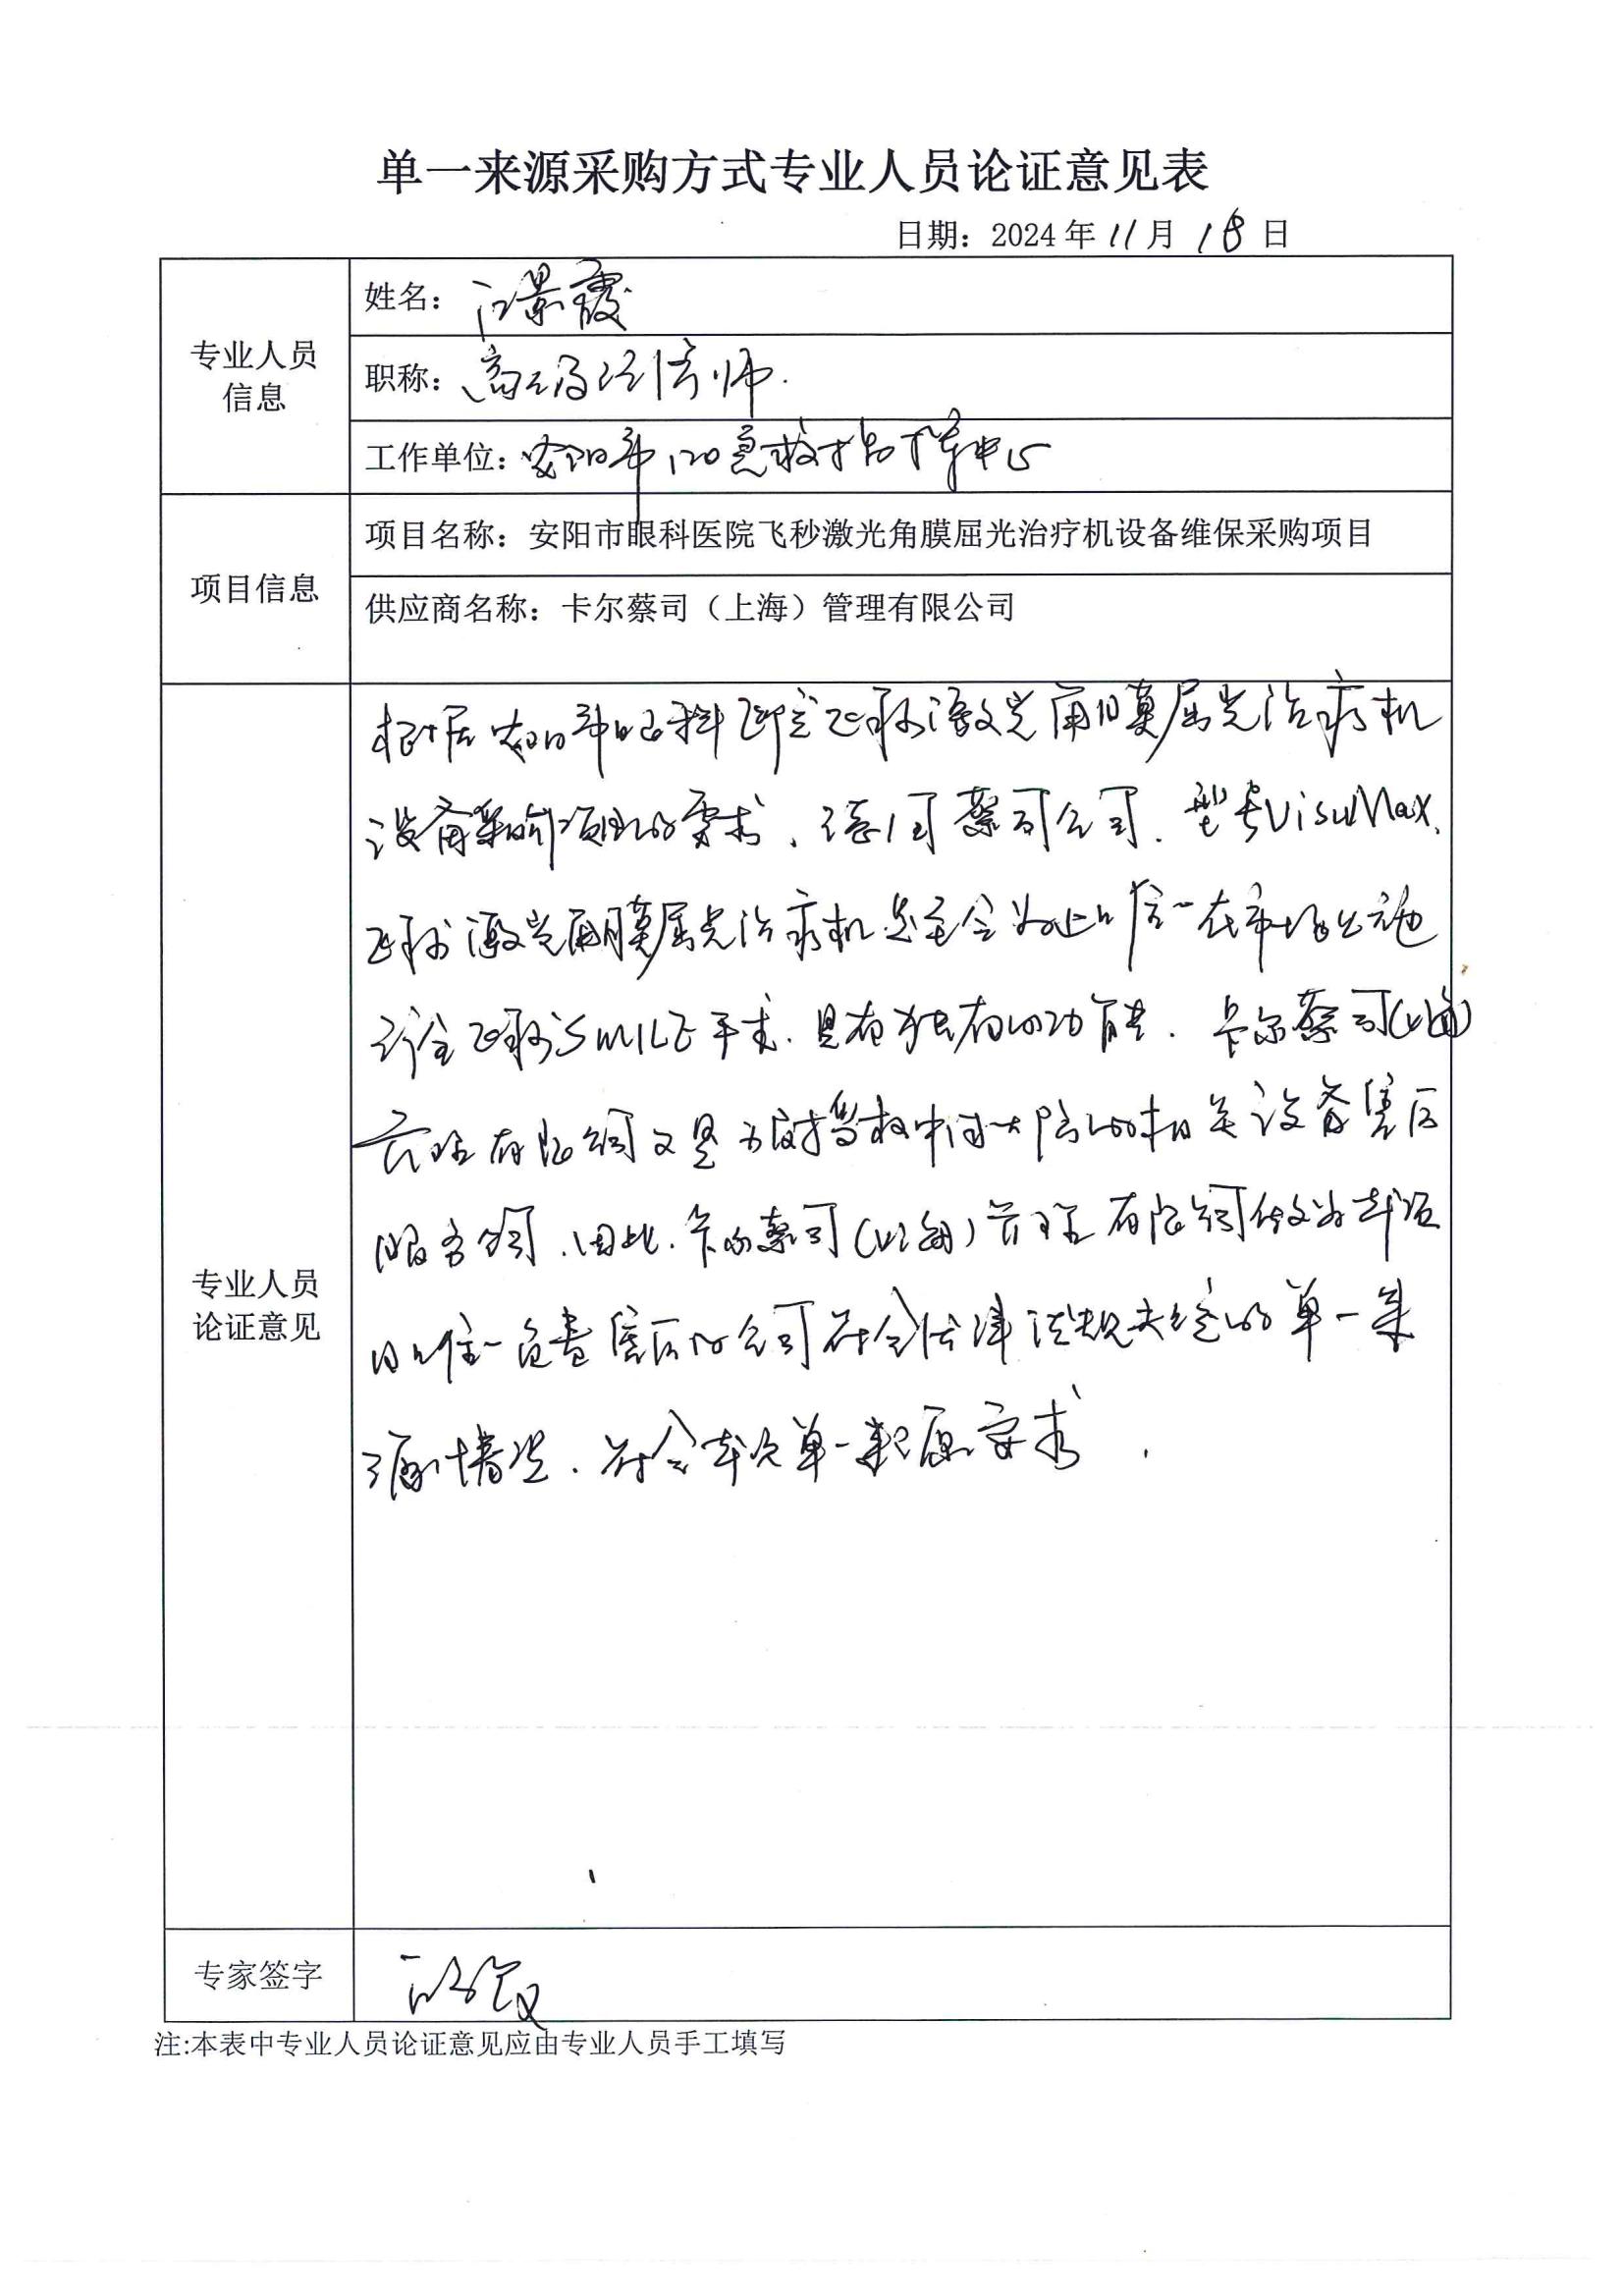 单一来源采购方式专业人员论证意见表
日期：2024年11月18日
专业人员
信息
姓名：景霞
职称：高级经济师
工作单位：安阳市120急救指挥中心
项目信息
项目名称：安阳市眼科医院飞秒激光角膜屈光治疗机设备维保采购项目
供应商名称：卡尔蔡司（上海）管理有限公司
专业人员
论证意见
根据安阳市眼科医院飞秒激光角膜屈光治疗机
设备采购项目的要求，德国蔡司公司，型号VisuMax，
飞秒激光角膜屈光治疗机是至今为止唯一在市场公施
行全飞秒SMILE手术，具有独有的功能，卡尔蔡司(上海)
管理有限公司又是授权中国大陆的相关设备售后
服务公司，因此，卡尔蔡司(上海)管理有限公司做为本项
目唯一负责售后的公司符合法律法规规定的单一来
源情况，符合本次单一来源要求。
专家签字
注:本表中专业人员论证意见应由专业人员手工填写